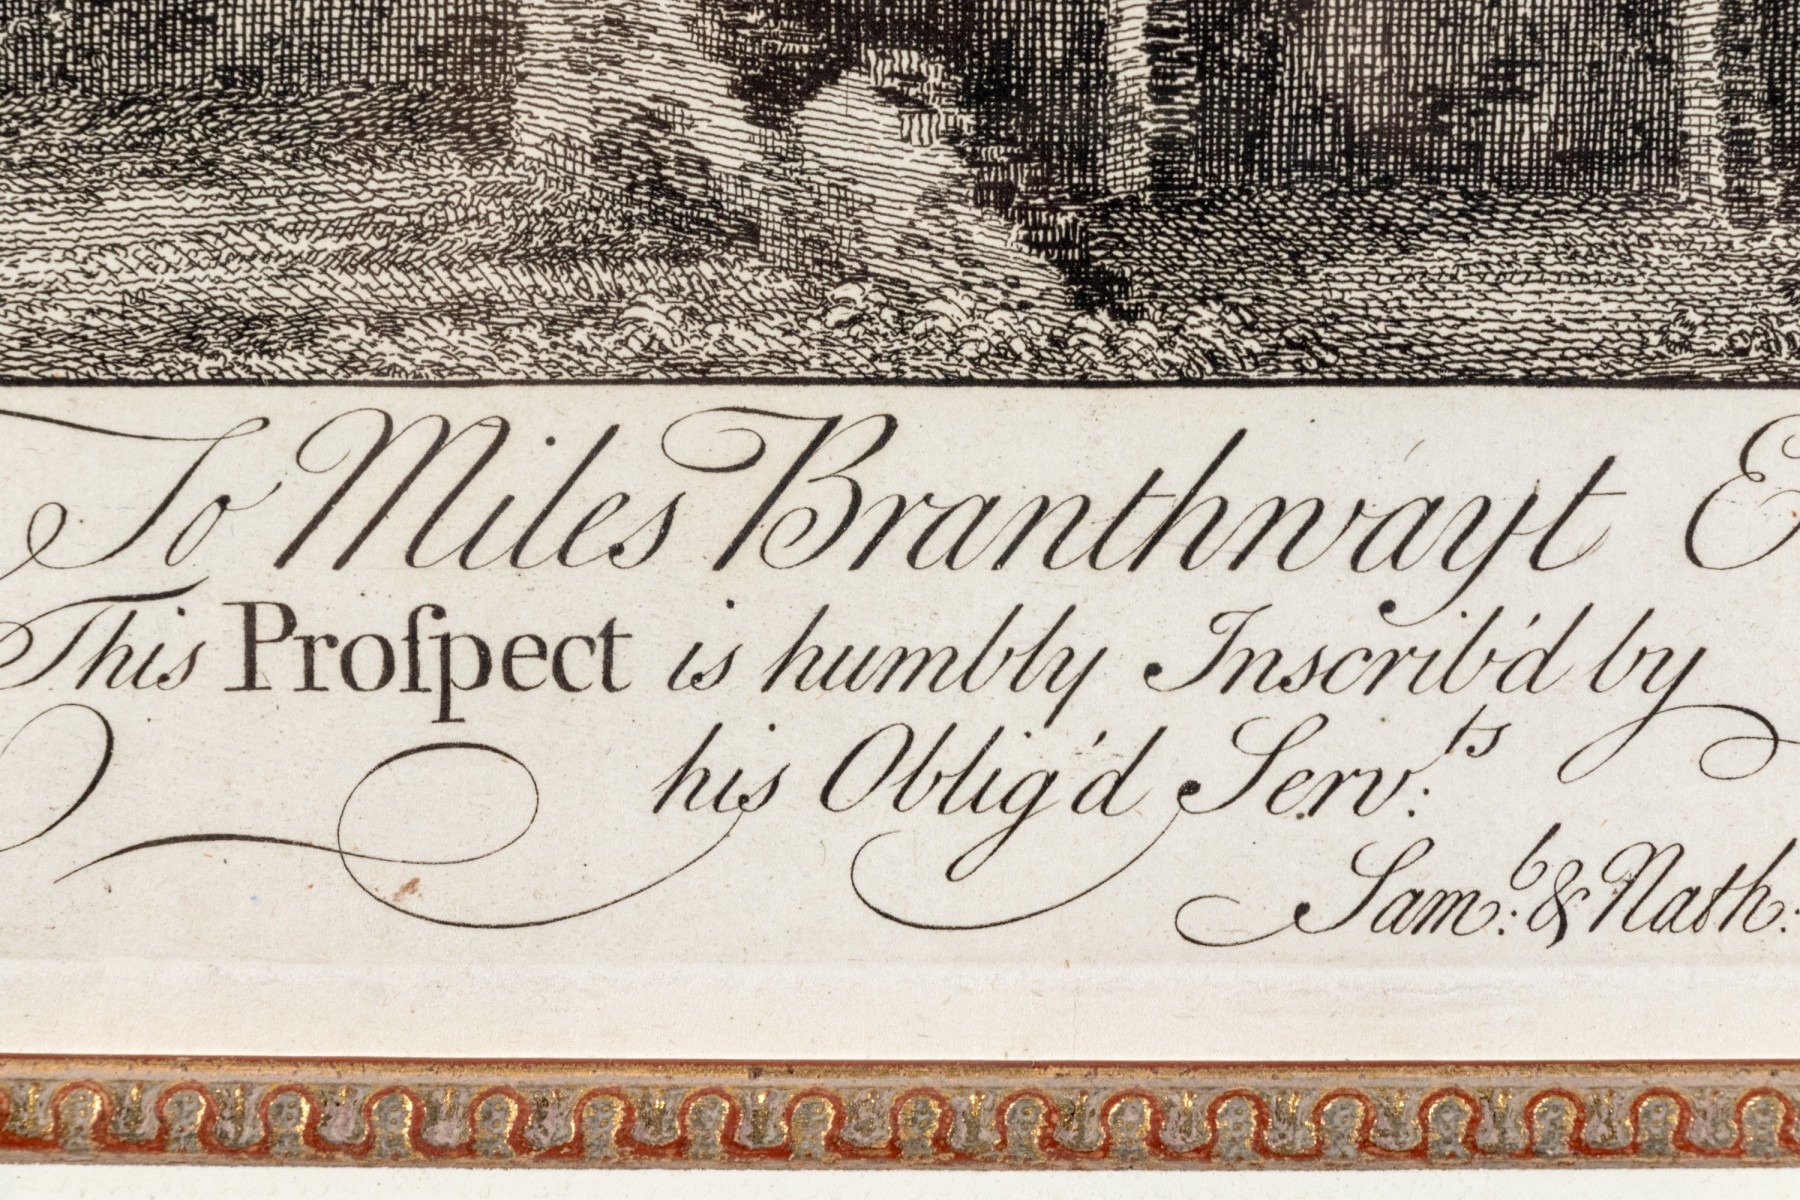 To Miles Branthwayt E
This Proſpect is humbly Inscrib'd by
his Oblig'd Serv:ts
Sam:l & Nath: